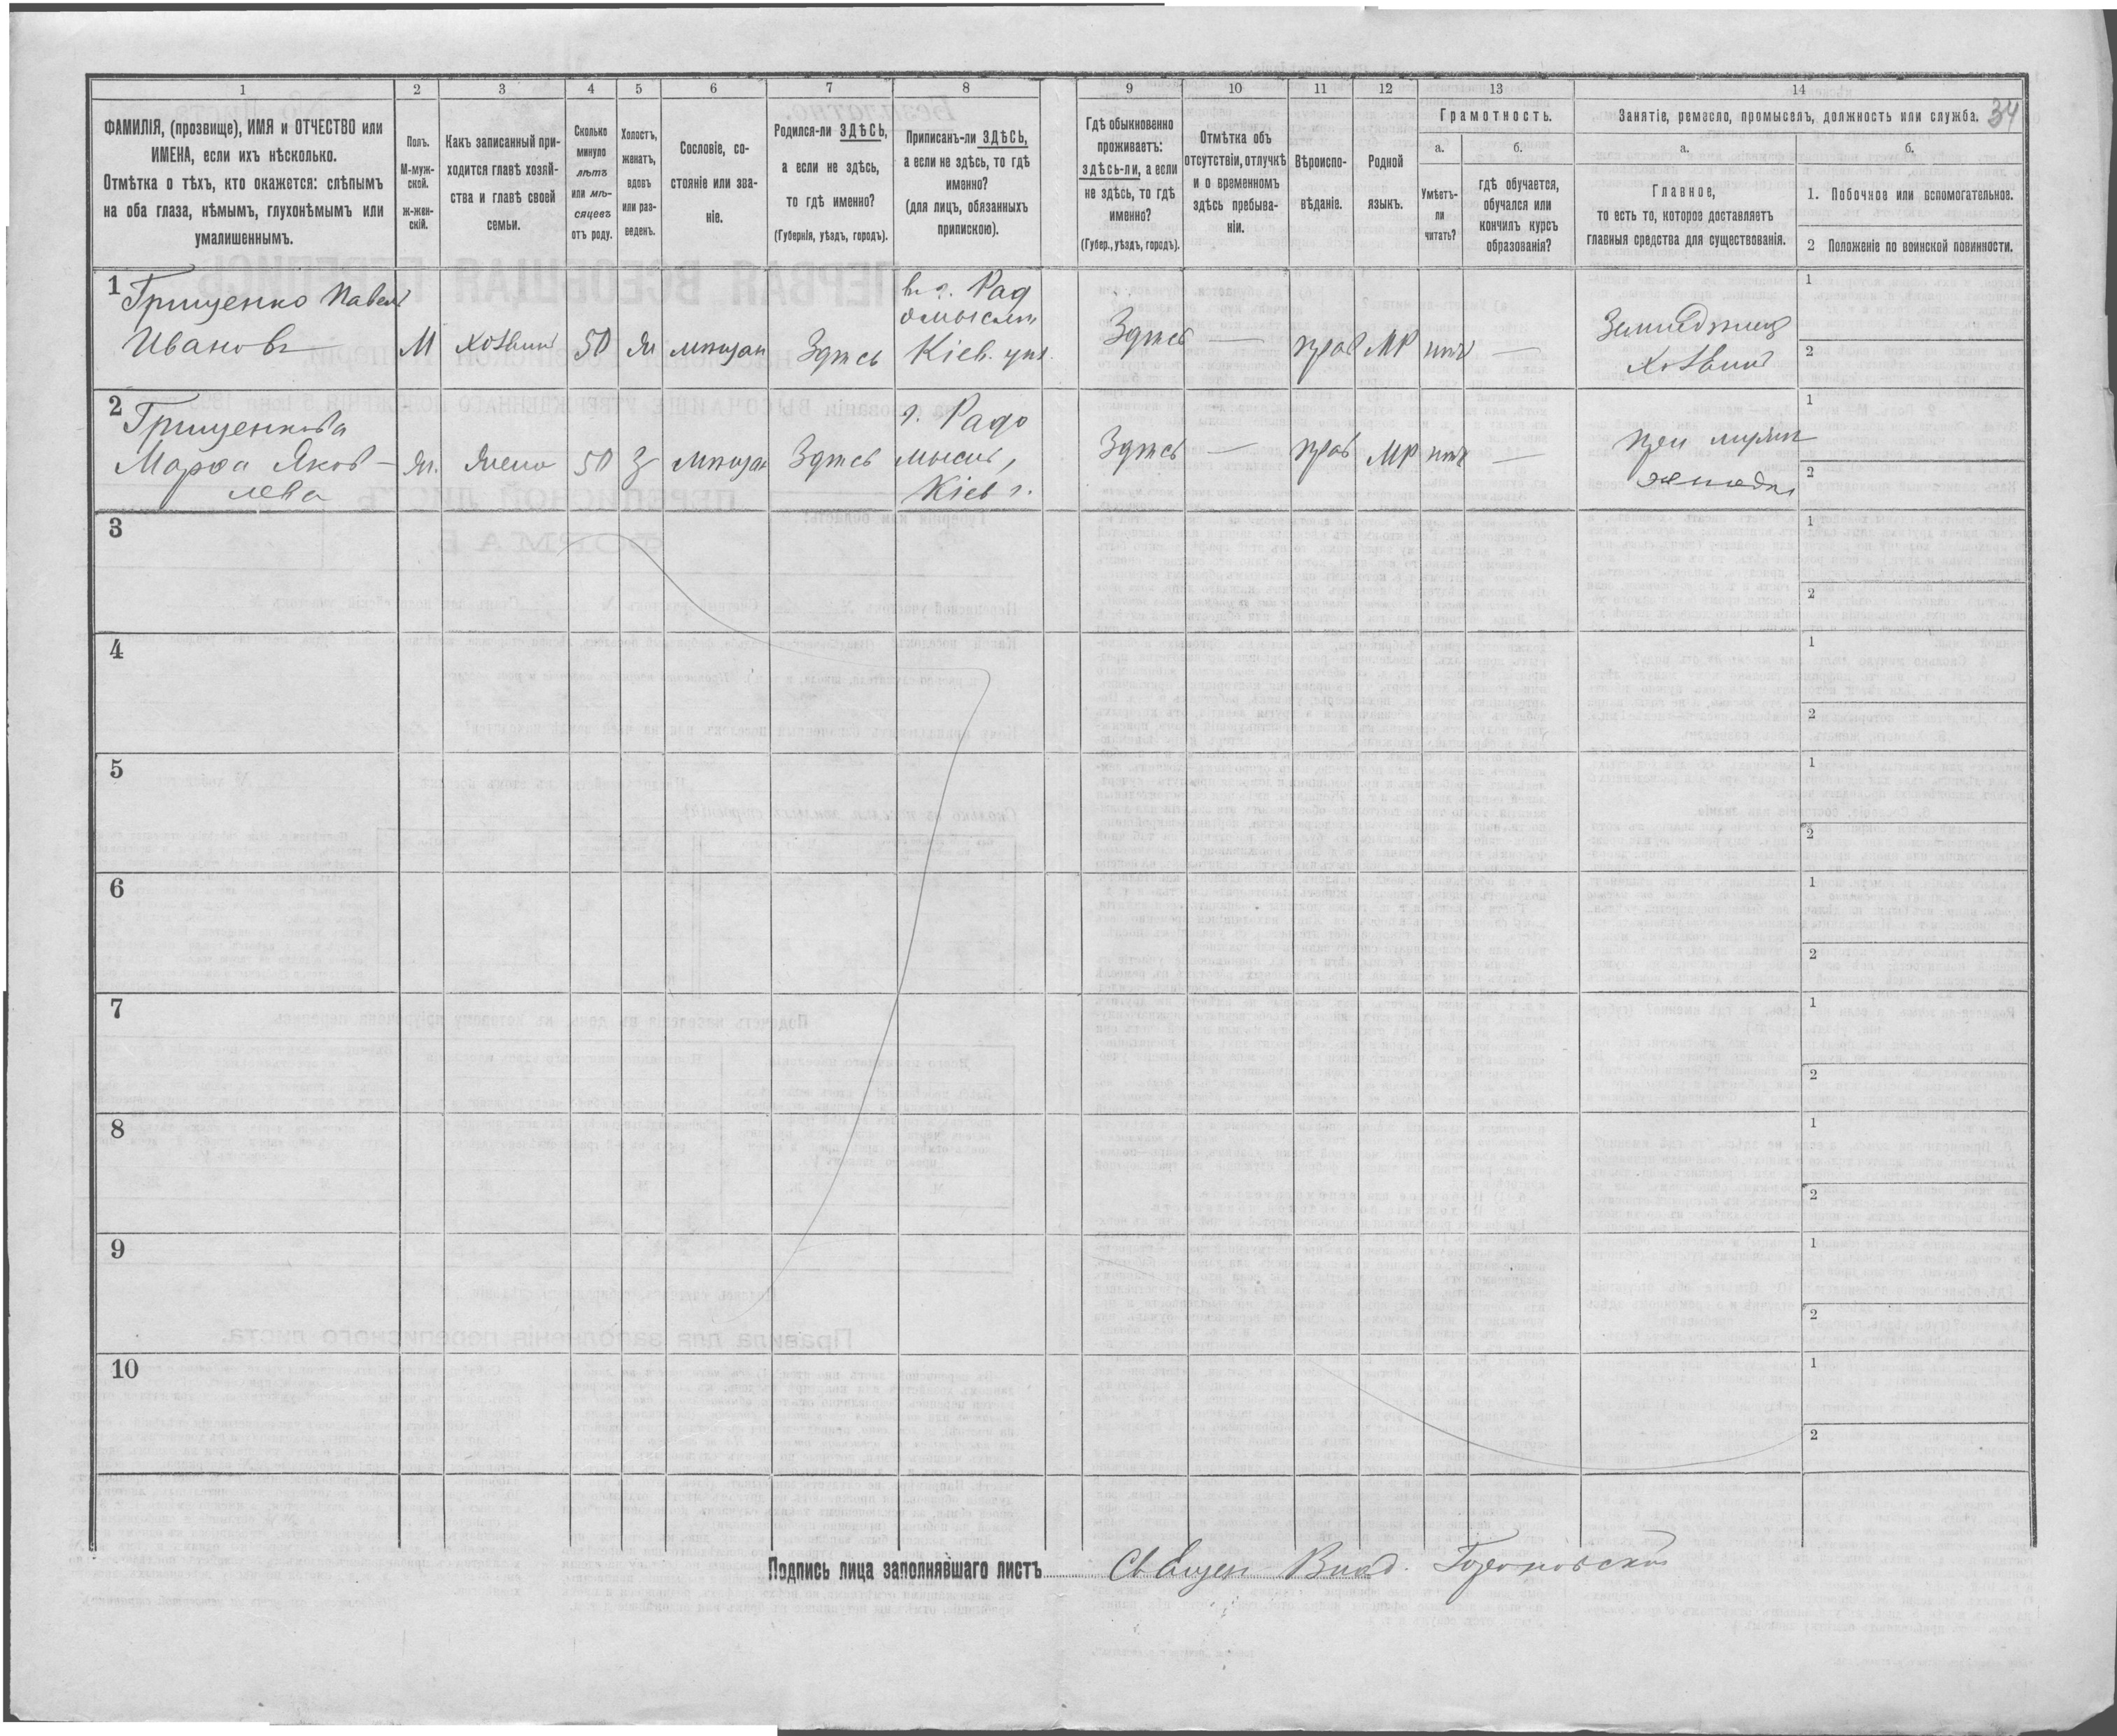 1 2 3 4 5 6 7 8 9 10 11 12 13 14
34
ФАМИЛІЯ, (прозвище), ИМЯ и ОТЧЕСТВО или
ИМЕНА, если ихъ нѣсколько.
Отмѣтка о тѣхъ, кто окажется: слѣпымъ
на оба глаза, нѣмымъ, глухонѣмымъ или
умалишеннымъ.
Полъ.
М-муж-
ской.
ж-жен-
скій.
Какъ записанный при-
ходится главѣ хозяй-
ства и главѣ своей
семьи.
Сколько
минуло
лѣтъ
или мѣ-
сяцевъ
отъ роду.
Холостъ,
женатъ,
вдовъ
или раз-
веденъ.
Сословіе, со-
стояніе или зва-
ніе.
Родился-ли ЗДѢСЬ,
а если не здѣсь,
то гдѣ именно?
(Губернія, уѣздъ, городъ).
Приписанъ-ли ЗДѢСЬ,
а если не здѣсь, то гдѣ
именно?
(для лицъ, обязанныхъ
припискою).
Гдѣ обыкновенно
проживаетъ:
здѣсь-ли, а если
не здѣсь, то гдѣ
именно?
(Губер., уѣздъ, городъ).
Отмѣтка объ
отсутствіи, отлучкѣ
и о временномъ
здѣсь пребыва-
ніи.
Вѣроиспо-
вѣданіе.
Родной
языкъ.
Грамотность.
а.
Умѣетъ-
ли
читать?
б.
гдѣ обучается,
обучался или
кончилъ курсъ
образованія?
Занятіе, ремесло, промыселъ, должность или служба.
а.
Главное,
то есть то, которое доставляетъ
главныя средства для существованія.
б.
1. Побочное или вспомогательное.
2 Положеніе по воинской повинности.
1
Грищенко Павелъ
Ивановъ
М
хозяинъ
50
ж
мѣщан
Здѣсь
в г. Рад
омыслѣ
Кіев. губ.
Здѣсь
—
прав
МР
нѣтъ
—
Земледѣлец
хозяинъ
1
2
2
Грищенкова
Марѳа Яков-
лева
ж.
жена
50
З
мѣщан
Здѣсь
г. Радо
мысль,
Кіев г.
Здѣсь
—
прав
МР
нѣтъ
—
При мужѣ
1
2
3
1
2
4
1
2
5
1
2
6
1
2
7
1
2
8
1
2
9
1
2
10
1
2
Подпись лица заполнявшаго листъ
Священ Влад.